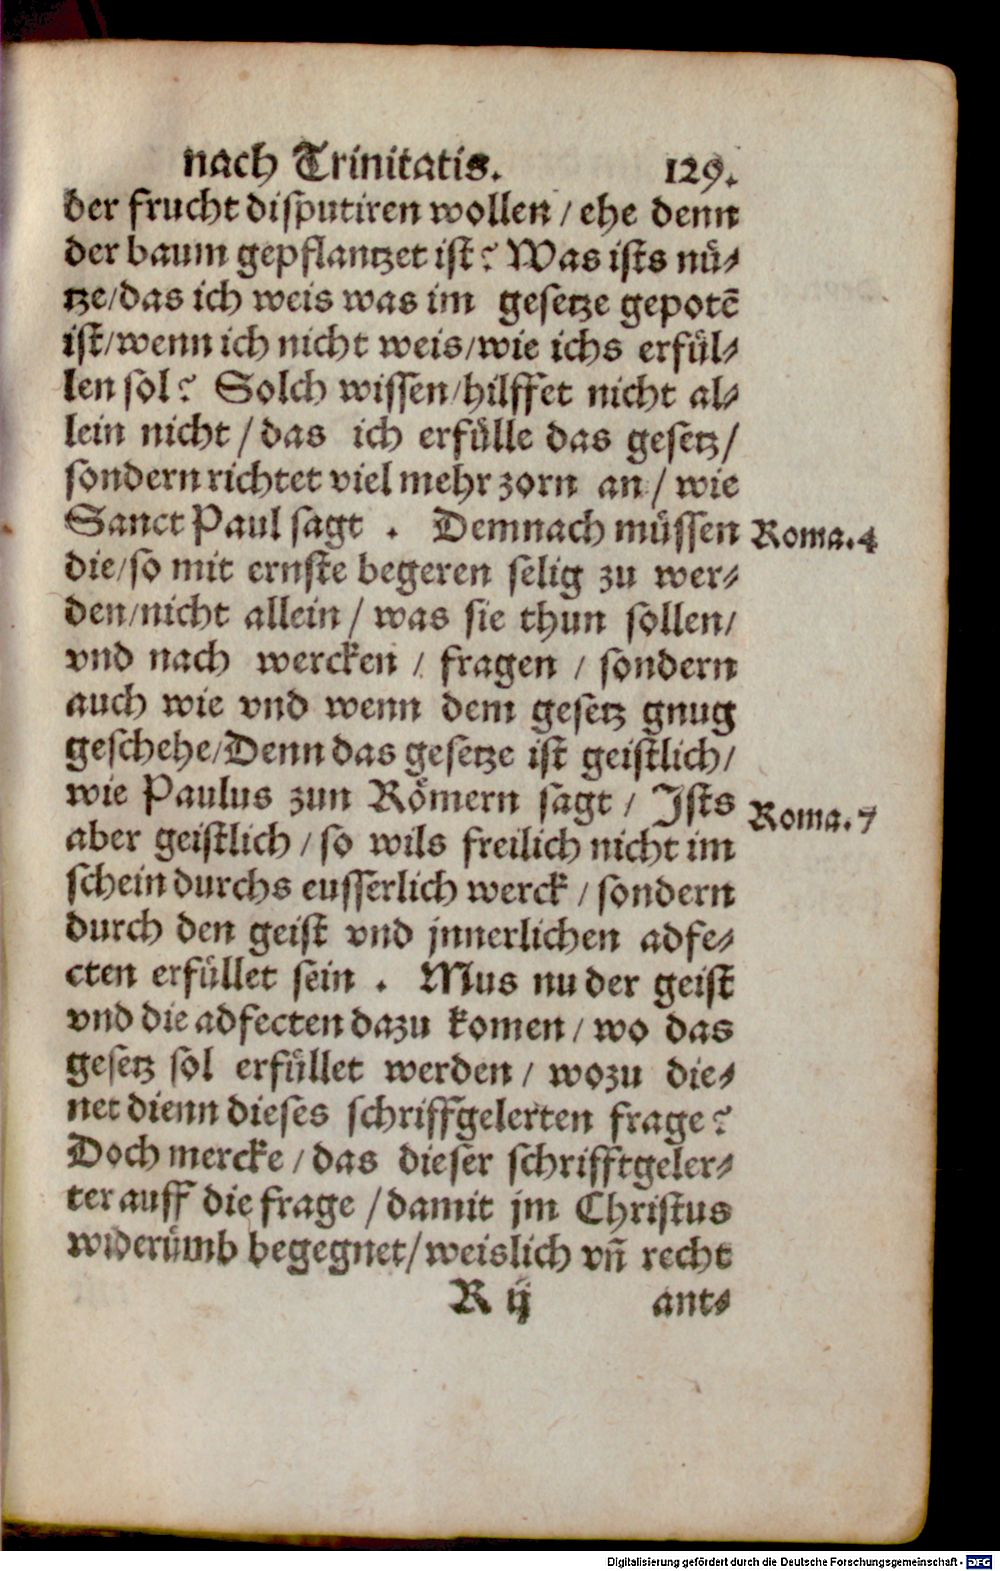 nach Trinitatis. 129.
der frucht disputiren wollen / ehe denn
der baum gepflantzet ist? Was ists nü⸗
tze/das ich weis was im gesetze gepotē
ist/wenn ich nicht weis/wie ichs erfül⸗
len sol? Solch wissen/hilffet nicht al⸗
lein nicht / das ich erfülle das gesetz/
sondern richtet viel mehr zorn an / wie
Sanct Paul sagt . Demnach müssen
Roma.4
die/so mit ernste begeren selig zu wer⸗
den/nicht allein / was sie thun sollen/
vnd nach wercken / fragen / sondern
auch wie vnd wenn dem gesetz gnug
geschehe/Denn das gesetze ist geistlich/
wie Paulus zun Römern sagt / Ists
Roma.7
aber geistlich / so wils freilich nicht im
schein durchs eusserlich werck / sondern
durch den geist vnd jnnerlichen adfe⸗
cten erfüllet sein . Mus nu der geist
vnd die adfecten dazu komen / wo das
gesetz sol erfüllet werden / wozu die⸗
net dienn dieses schriffgelerten frage?
Doch mercke / das dieser schrifftgeler⸗
ter auff die frage / damit jm Christus
widerümb begegnet/weislich vñ recht
R ij ant⸗
Digitalisierung gefördert durch die Deutsche Forschungsgemeinschaft - DFG